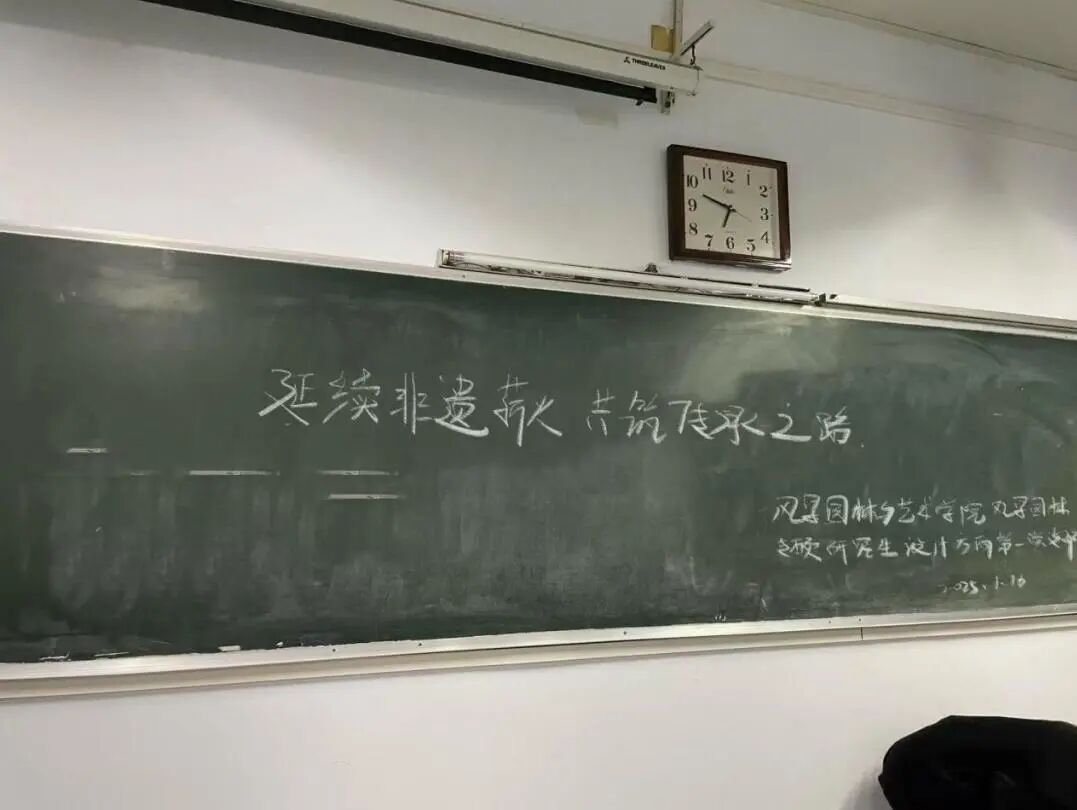 THREELEAVES
11 12 1
10 2
9 3
8 4
7 6 5
延续非遗薪火 共筑传承之路
风景园林与艺术学院风景园林
专硕研究生设计方向第一党支部
2025.1.16